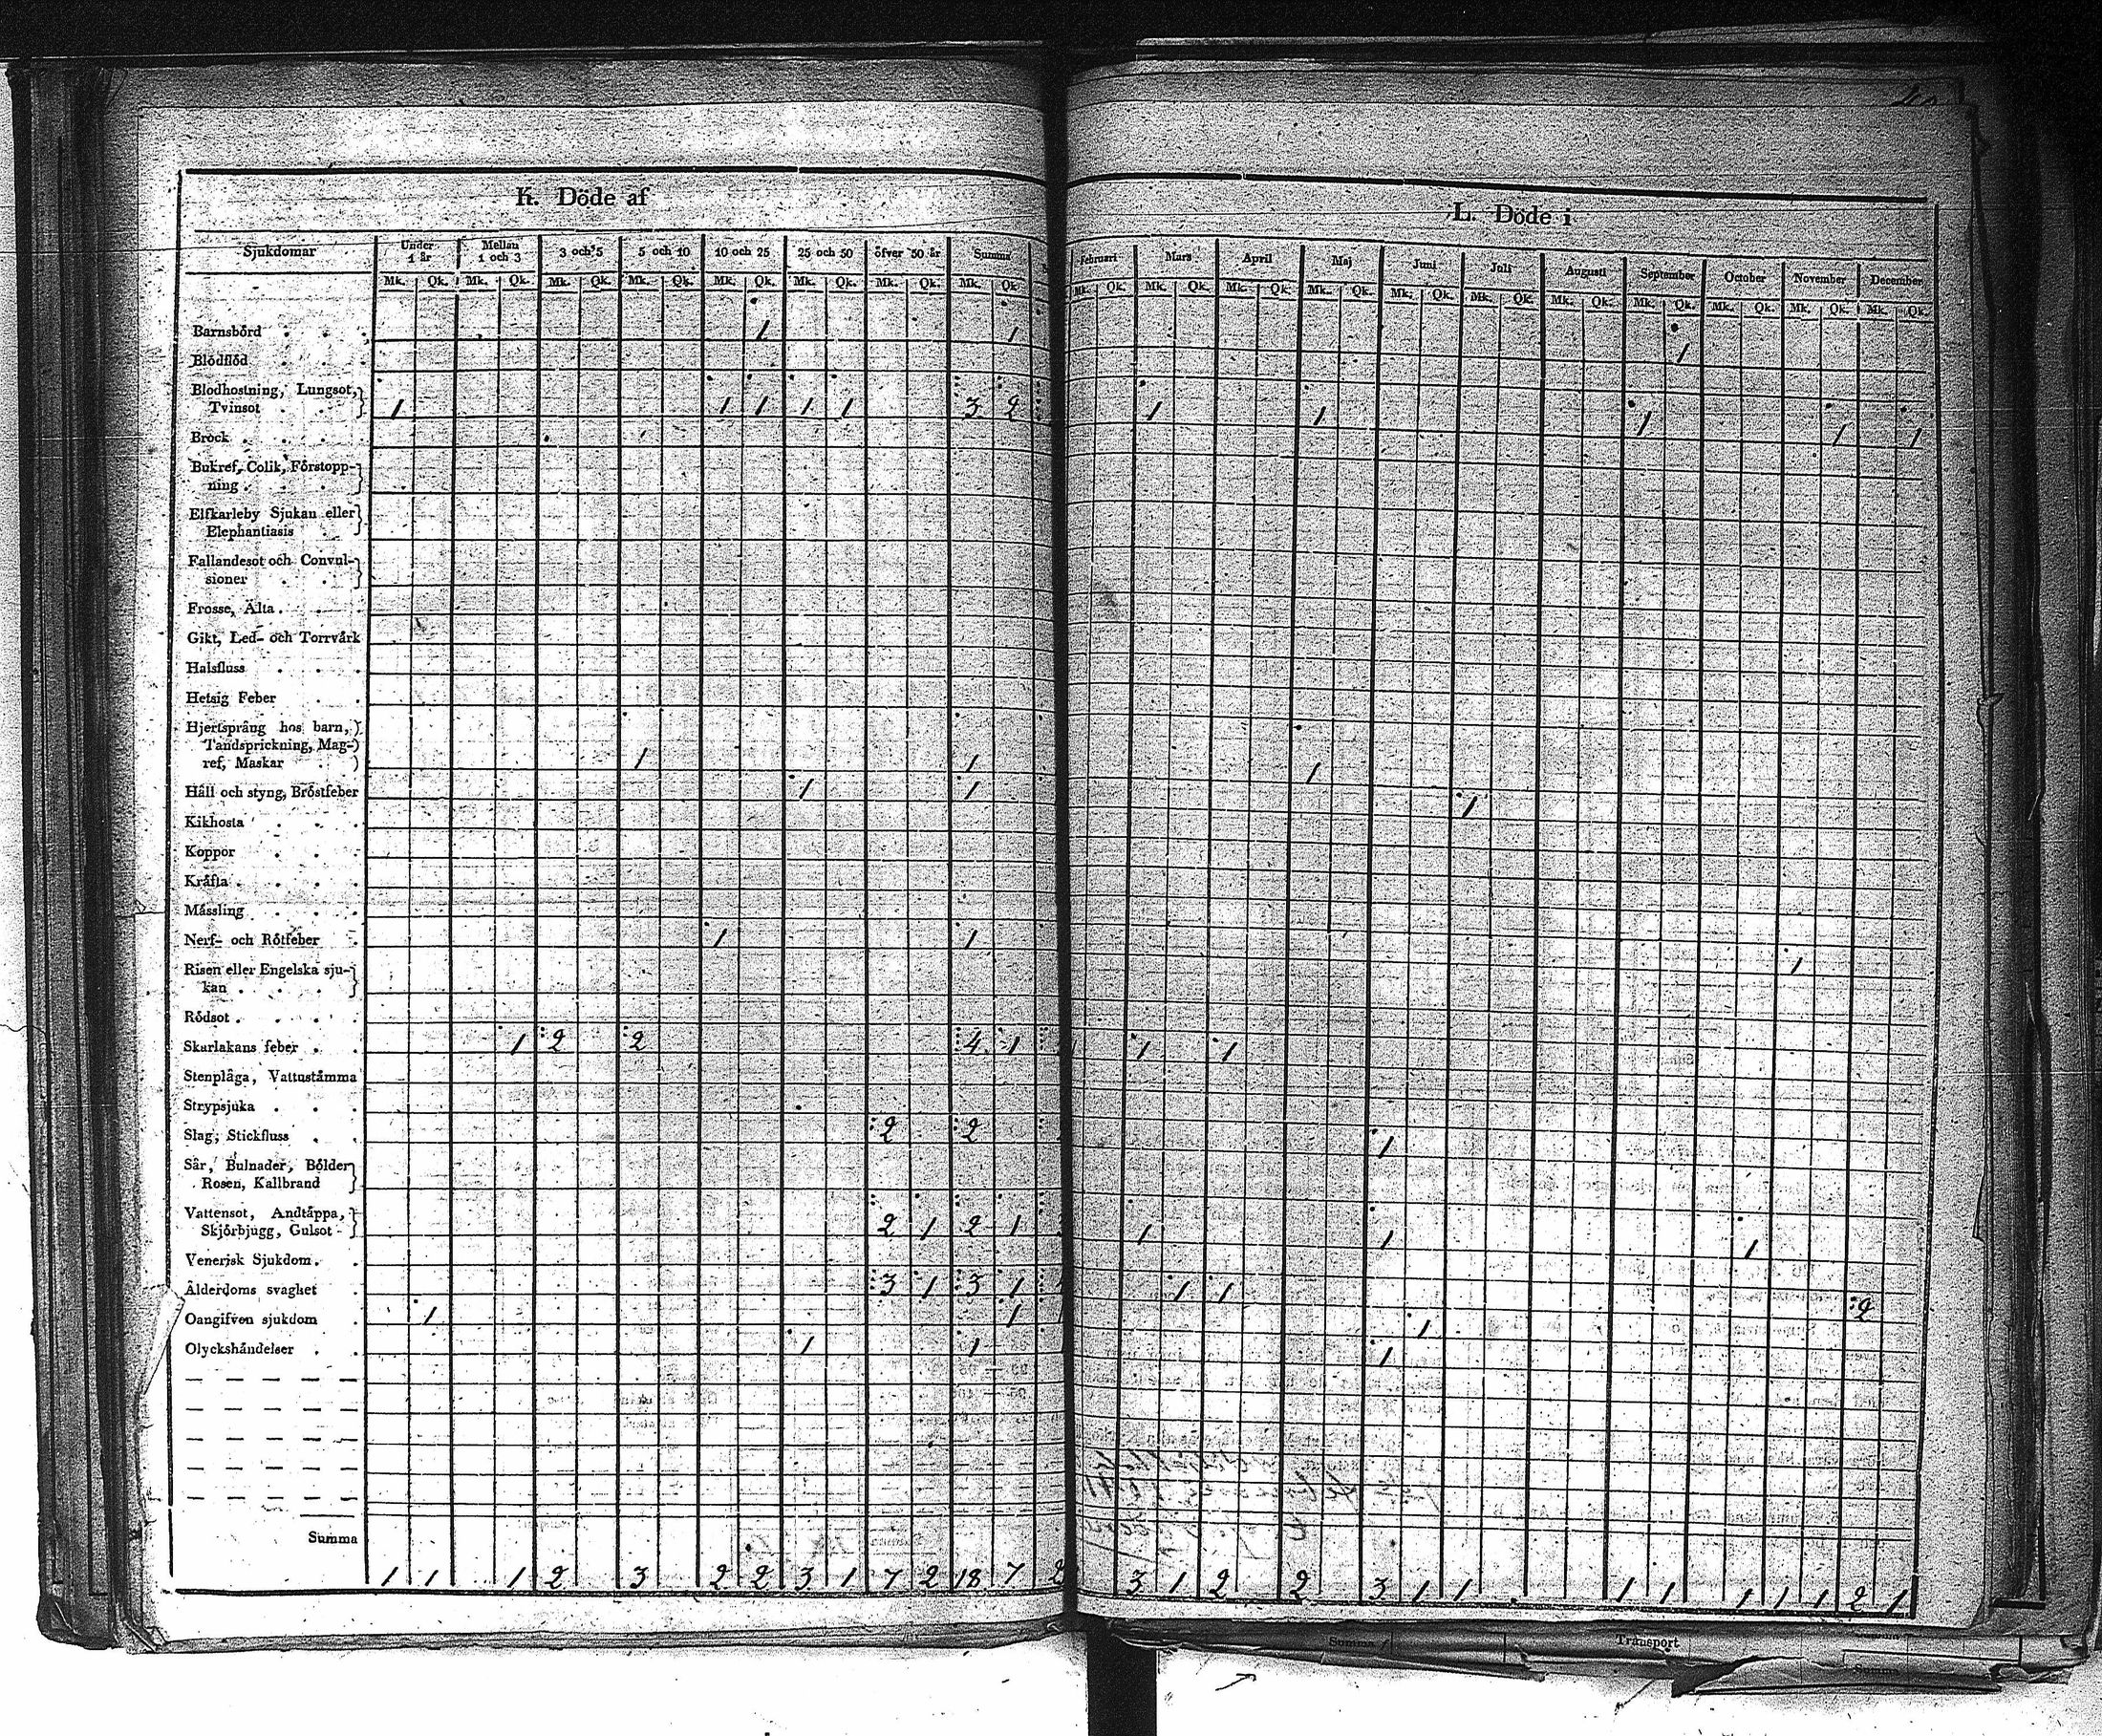 K. Döde af
L. Döde i
Sjukdomar Under 1 år Mellan 1 och 3 3 och 5 5 och 10 10 och 25 25 och 50 öfver 50 år Summa Februari Mars April Maj Juni Juli Augusti September October November December
Mk. Qk. Mk. Qk. Mk. Qk. Mk. Qk. Mk. Qk. Mk. Qk. Mk. Qk. Mk. Qk. Mk. Qk. Mk. Qk. Mk. Qk. Mk. Qk. Mk. Qk. Mk. Qk. Mk. Qk. Mk. Qk. Mk. Qk. Mk. Qk. Mk. Qk.
Barnsbörd 1 1 1
Blodflöd
Blodhostning, Lungsot,
Tvinsot 1 1 1 1 1 3 2 1 1 1 1 1
Bråck
Bukref, Colik, Förstopp-
ning
Elfkarleby Sjukan eller
Elephantiasis
Fallandesot och Convul-
sioner
Frosse, Älta
Gikt, Led- och Torrvärk
Halsfluss
Hetsig Feber
Hjertsprång hos barn,
Tandsprickning, Mag-
ref, Maskar 1 1 1
Håll och styng, Bröstfeber 1 1 1
Kikhosta
Koppor
Kräfta
Mässling
Nerf- och Rötfeber 1 1 1
Risen eller Engelska sju-
kan
Rödsot
Skarlakans feber 1 2 2 4 1 1 1
Stenplåga, Vattustämma
Strypsjuka
Slag, Stickfluss 2 2 1
Sår, Bulnader, Bölder
Rosen, Kallbrand
Vattensot, Andtäppa,
Skjörbjugg, Gulsot 2 1 2 1 1 1 1
Venerisk Sjukdom
Ålderdoms svaghet 3 1 3 1 1 1 2
Oangifven sjukdom 1 1 1
Olyckshändelser 1 1 1
Summa 1 1 1 2 3 2 2 3 1 7 2 18 7 2 3 1 2 2 3 1 1 1 1 1 1 1 2 1
Summa Transport
Summa